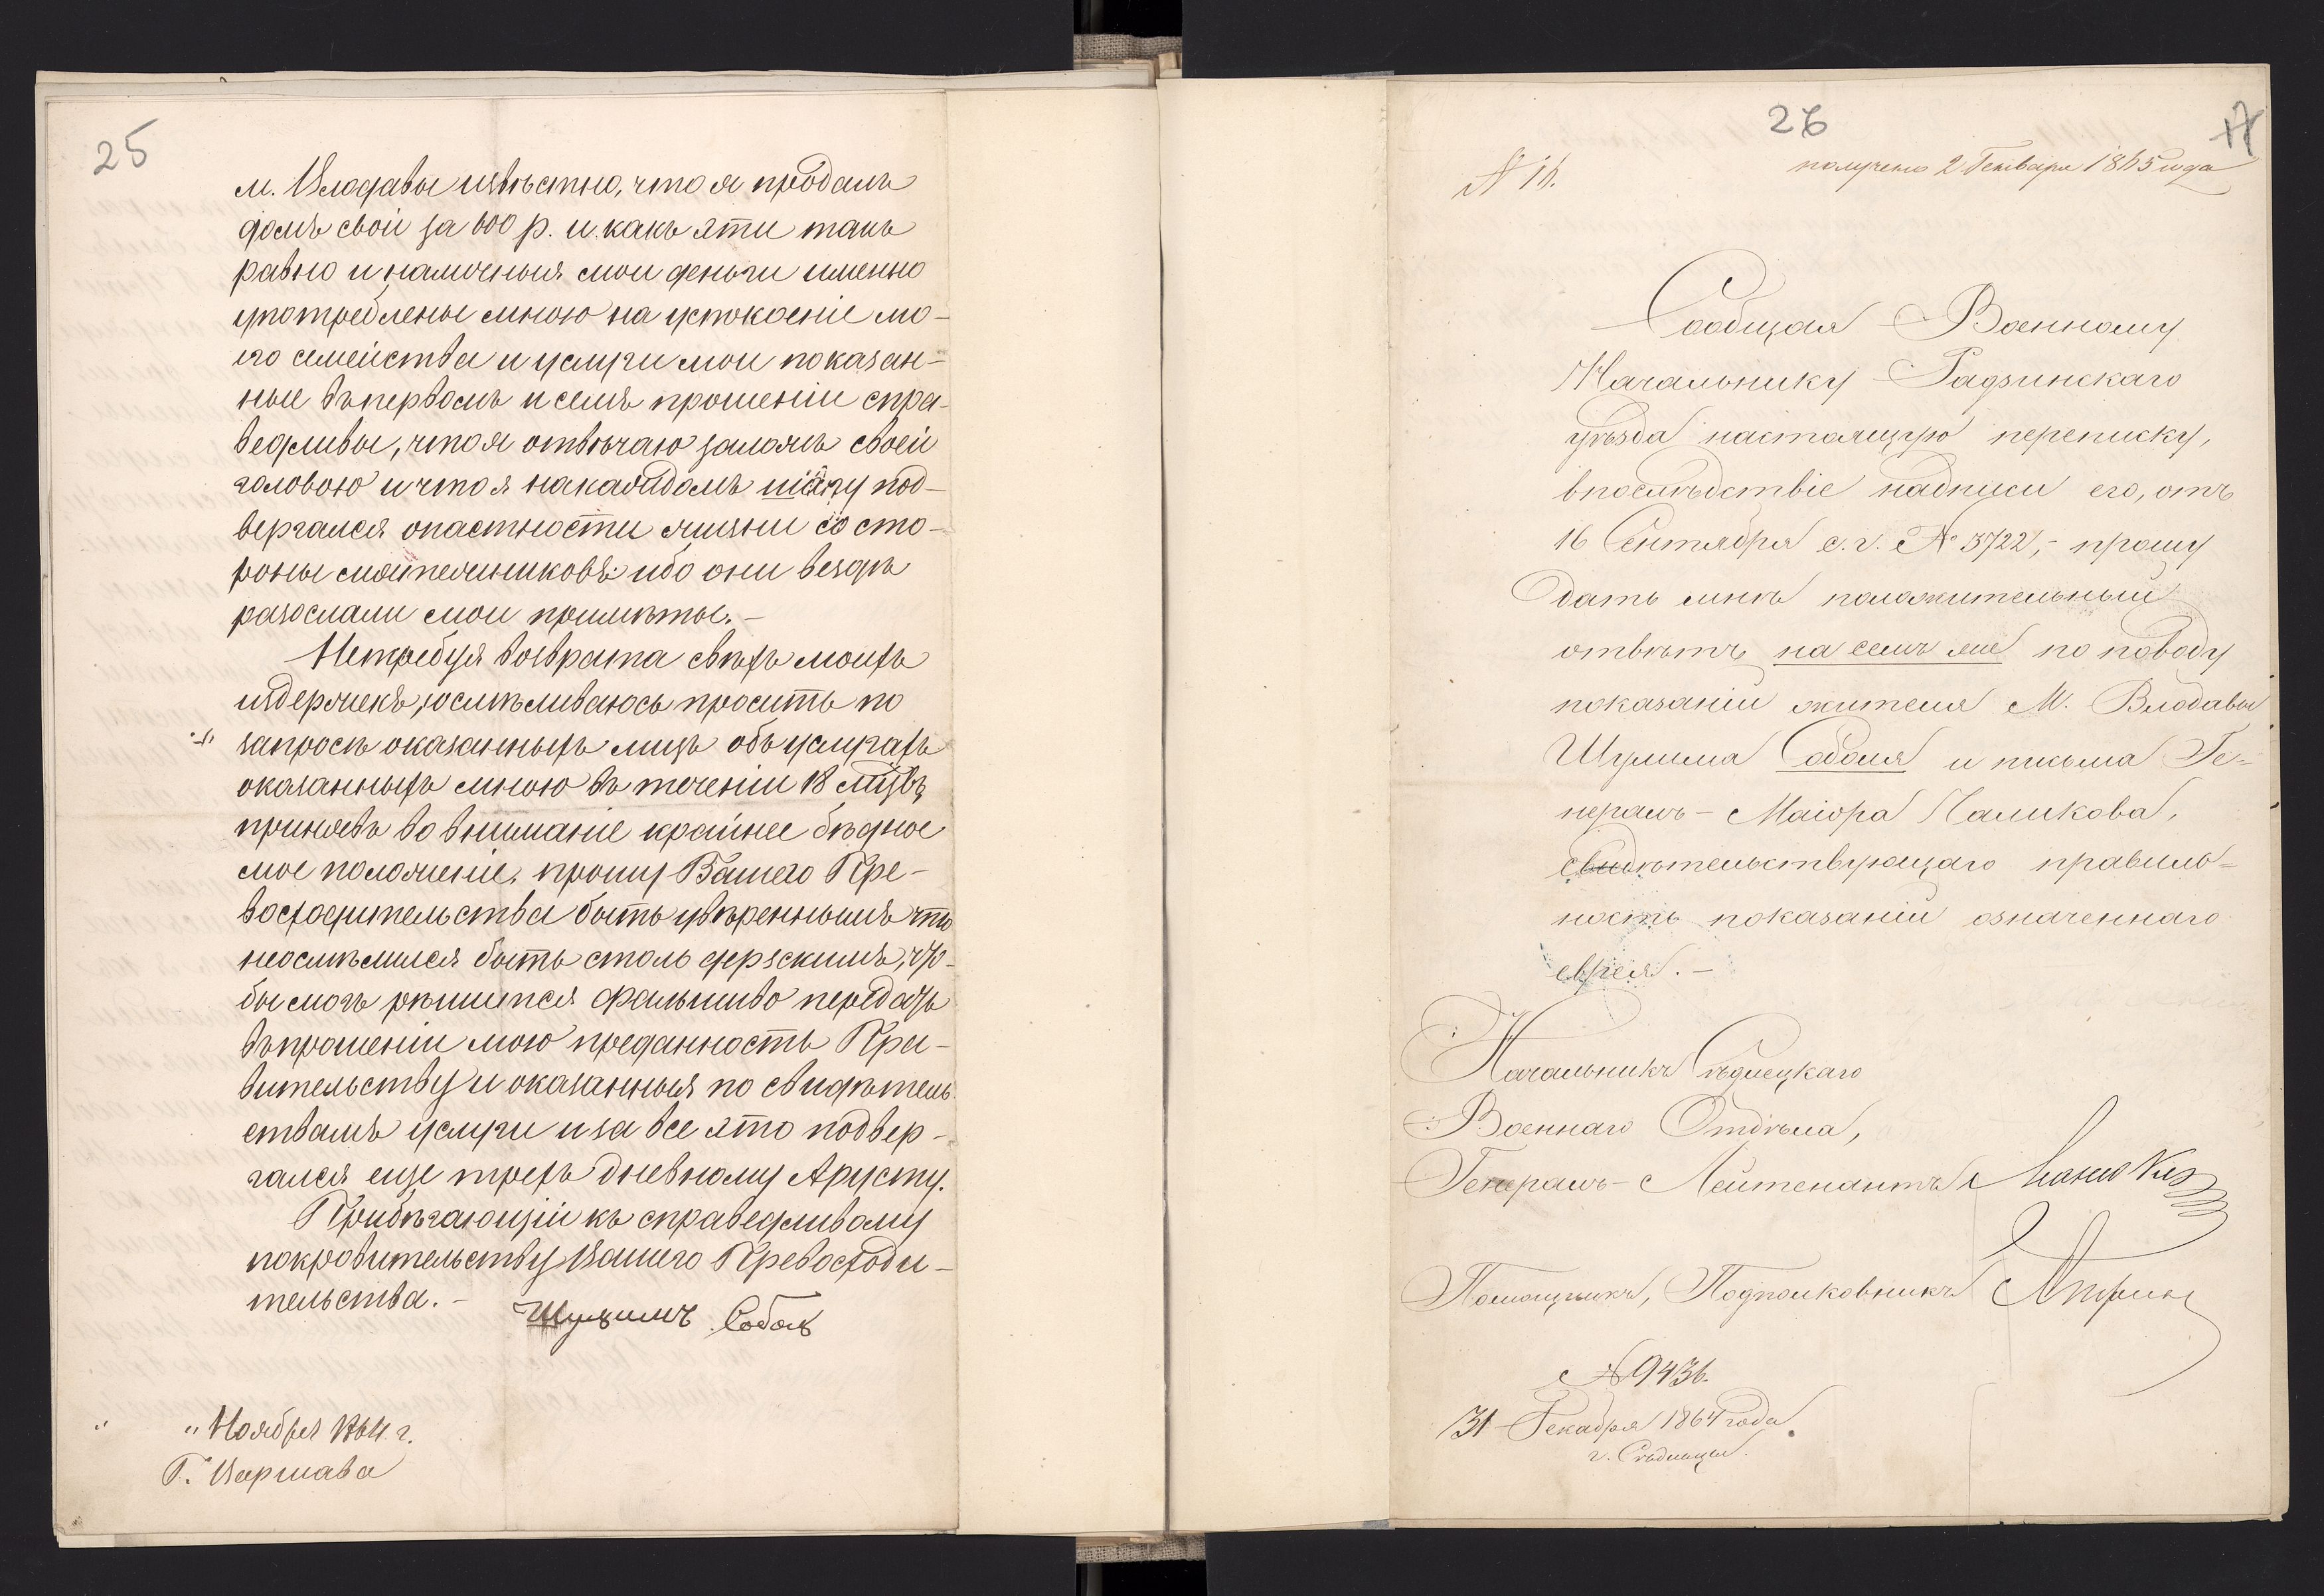 25
м. Влодавы извѣстно, что я продалъ
домъ свой за 600 р. и какъ эти такъ
равно и наличныя мои деньги именно
употреблены мною на успокоеніе мо-
его семейства и услуги мои показан-
ные въ первомъ и семъ прошеніи спра-
ведливы, что я отвѣчаю за ложь своей
головою и что я на каждомъ шагу под-
вергался опастности жизни со сто-
роны ибо они вездѣ
разослали мои примѣты. -
Нетребуя возврата свѣхъ моихъ
издержекъ, осмѣливаюсь просить по
запросѣ оказанныхъ лицъ объ услугахъ
оказанныхъ мною въ теченіи 18 мцвъ
принявъ во вниманіе крайнее бѣдное
мое положеніе, прошу Вашего Пре-
восходительства быть увѣреннымъ что
неосмѣлился быть столь дерзскимъ, что-
бы смогъ рѣшится фальшиво передать
въ прошеніи мою преданность Пра-
вительству и оказанныя по свидѣтель
ствамъ услуги и за все это подвер-
гался еще трехъ дневному Аресту.
Прибѣгающій къ справедливому
покровительству Вашего Превосходи-
тельства. -
Шулимъ Соболь
" " Ноября 1864 г.
Г. Варшава
26
17
№ 16.
получено 2 Генваря 1865 года
Сообщая Военному
Начальнику Радзинскаго
уѣзда настоящую переписку,
впослѣдствіе надписи его, отъ
16 Сентября с. г. № 3722, - прошу
дать мнѣ положительный
отвѣтъ на семъ же по поводу
показаній жителя М. Влодавы
Шулима Соболя и письма Ге-
нералъ-Маіора Паликова,
свидѣтельствующаго правиль-
ность показаній означеннаго
еврея. -
Начальникъ Сѣдлецкаго
Военнаго Отдѣла,
Генералъ-Лейтенантъ Манюкин
Помощникъ, Подполковникъ
№ 9436.
31 Декабря 1864 года.
г. Сѣдлецы.